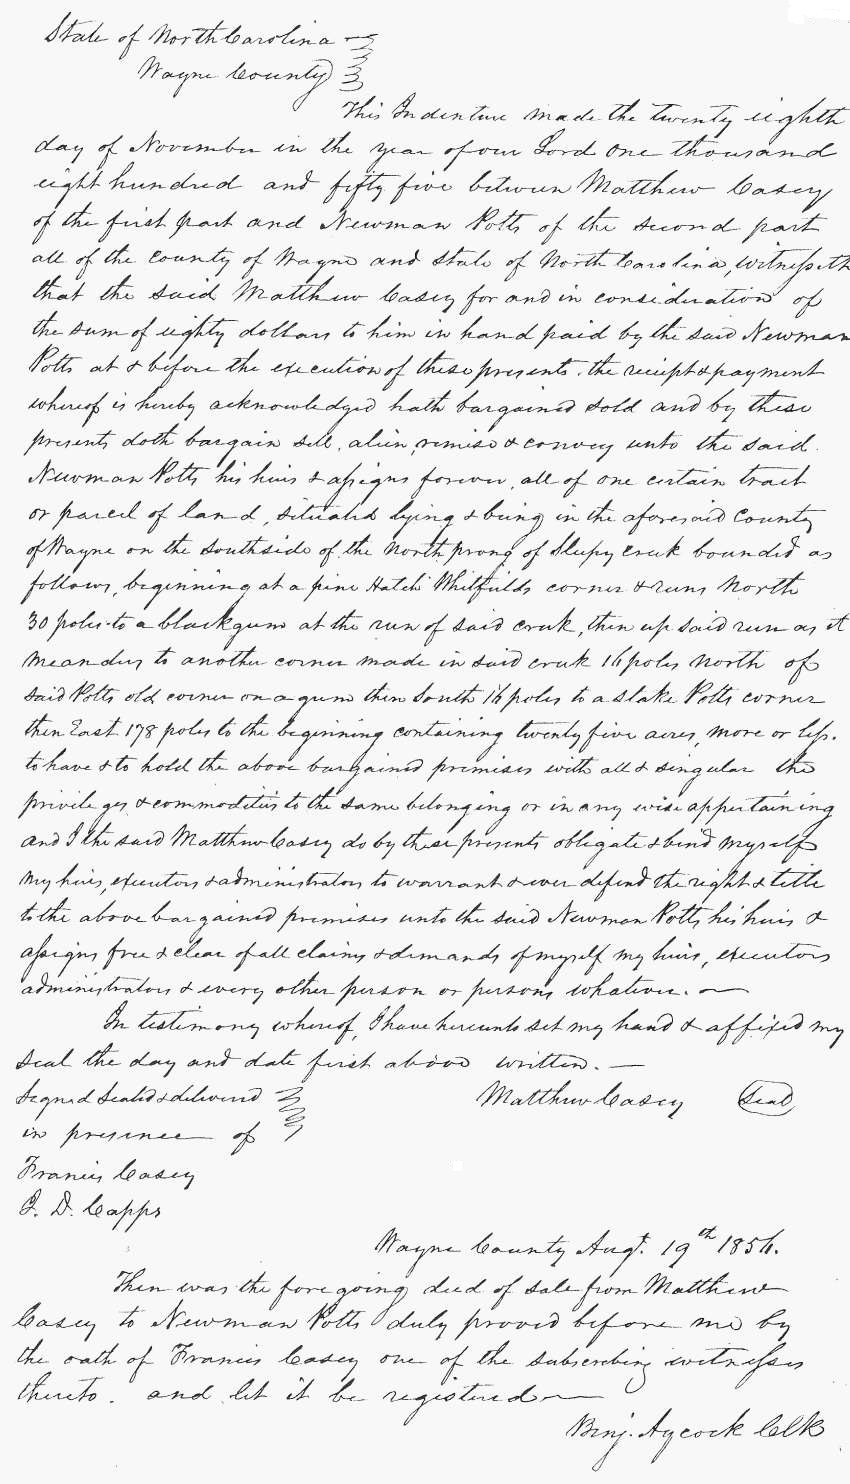 State of North Carolina
Wayne County
This Indenture made the twenty eighth
day of November in the year of our Lord one thousand
eight hundred and fifty five between Matthew Casey
of the first part and Newman Potts of the second part
all of the county of Wayne and state of North Carolina, witnesseth
that the said Matthew Casey for and in consideration of
the sum of eighty dollars to him in hand paid by the said Newman
Potts at & before the execution of these presents. the reciept & payment
whereof is hereby acknowledged hath bargained sold and by these
presents doth bargain sell, alien, remise & convey unto the said
Newman Potts his heirs & assigns forever, all of one certain tract
or parcel of land, situated lying & being in the aforesaid County
of Wayne on the south side of the North prong of Sleepy creek bounded as
follows, beginning at a pine Hatch Whitfields corner & runs North
30 poles to a black gum at the run of said creek, then up said run as it
meanders to another corner made in said creek 16 poles north of
said Potts old corner on a gum then South 16 poles to a stake Potts corner
then East 178 poles to the beginning containing twenty five acres, more or less.
to have & to hold the above bargained premises with all & singular the
privileges & commodities to the same belonging or in any wise appertaining
and I the said Matthew Casey do by these presents obligate & bind myself
my heirs, executors & administrators to warrant & ever defend the right & title
to the above bargained premises unto the said Newman Potts his heirs &
assigns free & clear of all claims & demands of myself my heirs, executors
administrators & every other person or persons whatever.
In testimony whereof, I have hereunto set my hand & affixed my
seal the day and date first above written.
Signed Sealed & delivered
Matthew Casey Seal
in presence of
Francis Casey
J. D. Capps
Wayne County Augt. 19th 1856.
Then was the foregoing deed of sale from Matthew
Casey to Newman Potts duly proved before me by
the oath of Francis Casey one of the subscribing witnesses
thereto. and let it be registered
Benj. Aycock Clk